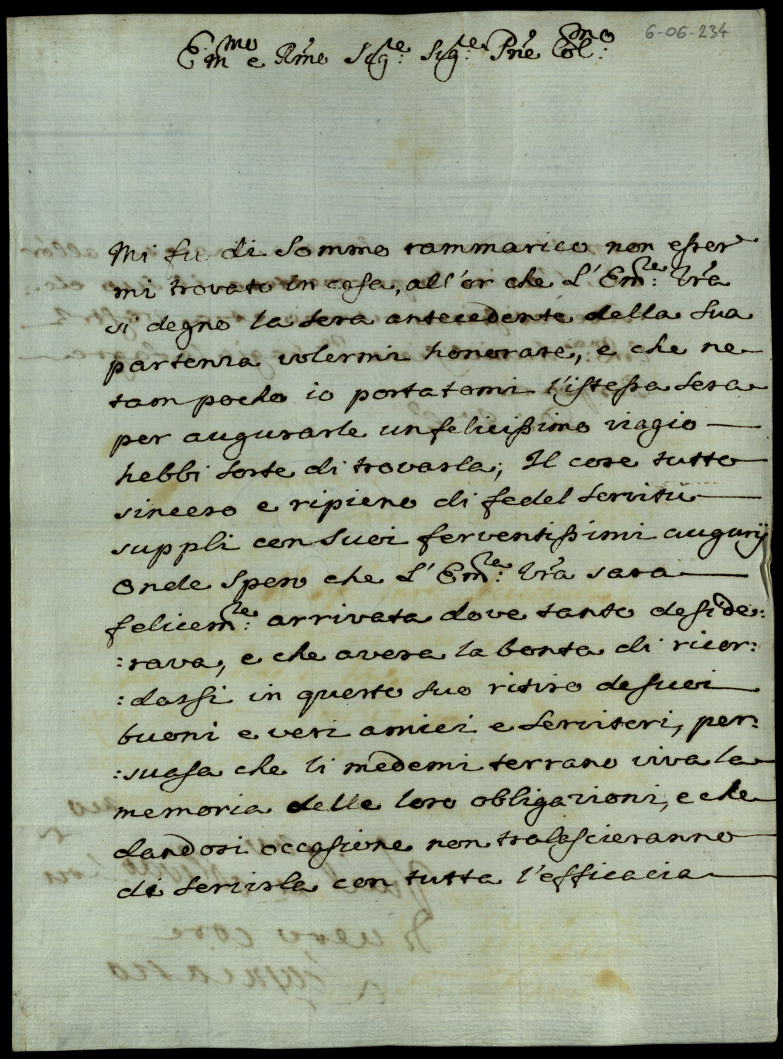 6-06-234
E.mmo e Rmo Sigre: Sigre: Prne Colmo:
Mi fu di sommo rammarico non esser
mi trovato in casa, all'or che L'Emza: Vra
si degno la sera antecedente della sua
partenza volermi honorare, e che ne
tam poco io portatomi l'istessa sera
per augurarle un felicissimo viagio
hebbi sorte di trovarla; Il core tutto
sincero e ripieno di fedel servitù
suppli con suoi ferventissimi augurij
Onde spero che L'Emza: Vra sara
felicemte: arrivata dove tanto deside:
:rava, e che avera la bonta di ricor:
:darsi in questo suo ritiro de suoi
buoni e veri amici e servitori, per:
:suasa che li medemi terrano viva la
memoria delle loro obligazioni, e che
dandosi occasione non tralascieranno
di servirla con tutta l'efficacia